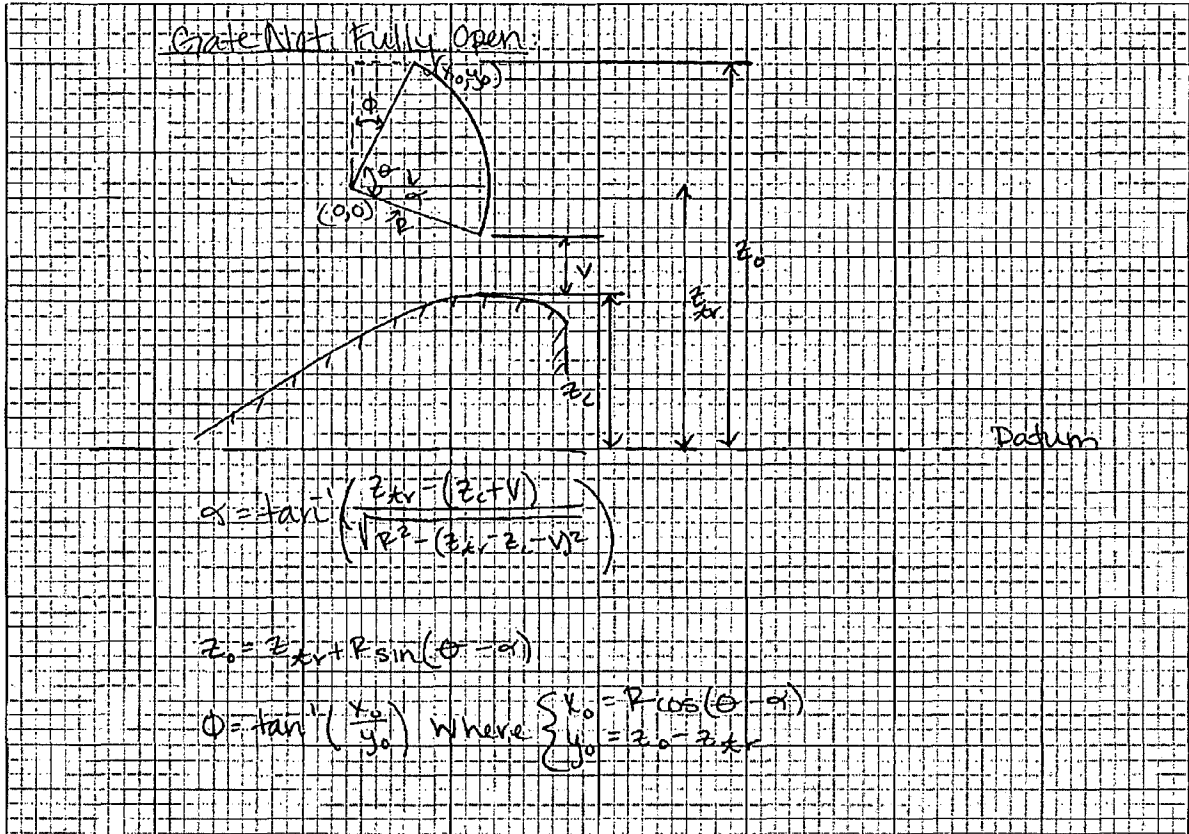 Gate Not Fully Open:
(x₀,y₀)
φ
θ
α
(0,0)
R
V
z₀
z_tr
z_c
Datum
α = tan⁻¹( (z_tr - (z_c + V)) / √(R² - (z_tr - z_c - V)²) )
z₀ = z_tr + R sin(θ - α)
φ = tan⁻¹(x₀/y₀) where { x₀ = R cos(θ - α)
y₀ = z₀ - z_tr